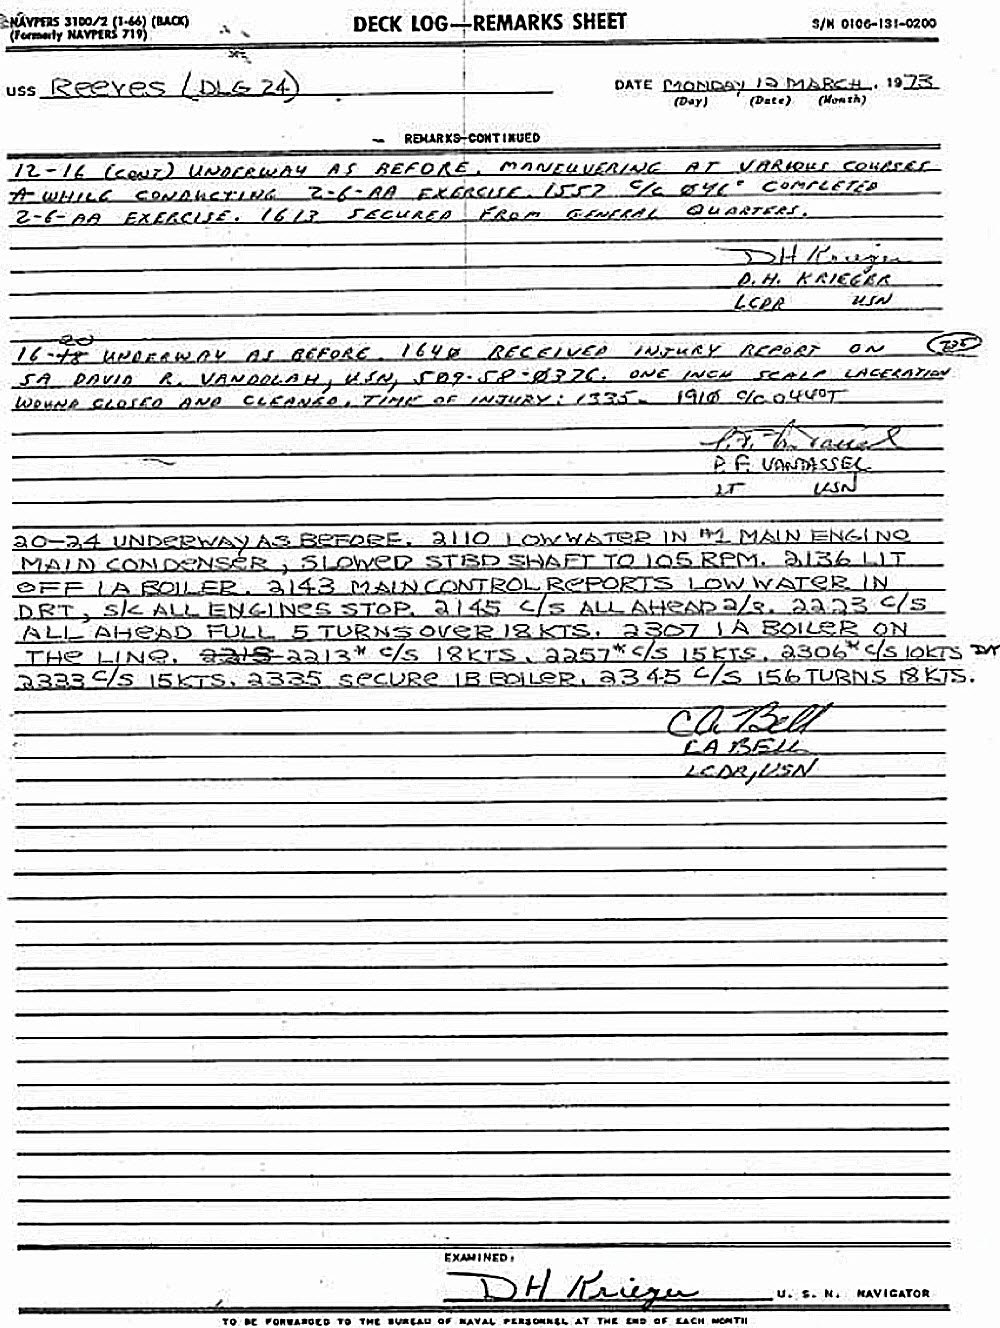 NAVPERS 3100/2 (1-66) (BACK)
(Formerly NAVPERS 719)
DECK LOG—REMARKS SHEET
S/N 0106-131-0200
USS Reeves (DLG 24)
DATE MONDAY 12 MARCH, 1973
(Day) (Date) (Month)
REMARKS-CONTINUED
12-16 (CONT) UNDERWAY AS BEFORE, MANEUVERING AT VARIOUS COURSES
WHILE CONDUCTING 2-6-AA EXERCISE. 1557 C/C 046° COMPLETED
2-6-AA EXERCISE. 1613 SECURED FROM GENERAL QUARTERS.
DH Krieger
D.H. KRIEGER
LCDR USN
20
16-18 UNDERWAY AS BEFORE. 1640 RECEIVED INJURY REPORT ON
SA DAVID R. VANDOLAH, USN, 509-58-0376. ONE INCH SCALP LACERATION
WOUND CLOSED AND CLEANED. TIME OF INJURY: 1335. 1910 C/C 044°T
P. F. VANDASSEL
LT USN
20-24 UNDERWAY AS BEFORE. 2110 LOW WATER IN #1 MAIN ENGINE
MAIN CONDENSER, SLOWED STBD SHAFT TO 105 RPM. 2136 LIT
OFF 1A BOILER. 2143 MAIN CONTROL REPORTS LOW WATER IN
DRT, S/C ALL ENGINES STOP. 2145 C/S ALL AHEAD 2/3. 2223 C/S
ALL AHEAD FULL 5 TURNS OVER 18 KTS. 2307 1A BOILER ON
THE LINE. 2213* C/S 18KTS. 2257* C/S 15KTS. 2306* C/S 10KTS
2323 C/S 15KTS. 2335 SECURE 1B BOILER. 2345 C/S 156 TURNS 18KTS.
CA Bell
CA BELL
LCDR, USN
EXAMINED:
DH Krieger U. S. N. NAVIGATOR
TO BE FORWARDED TO THE BUREAU OF NAVAL PERSONNEL AT THE END OF EACH MONTH